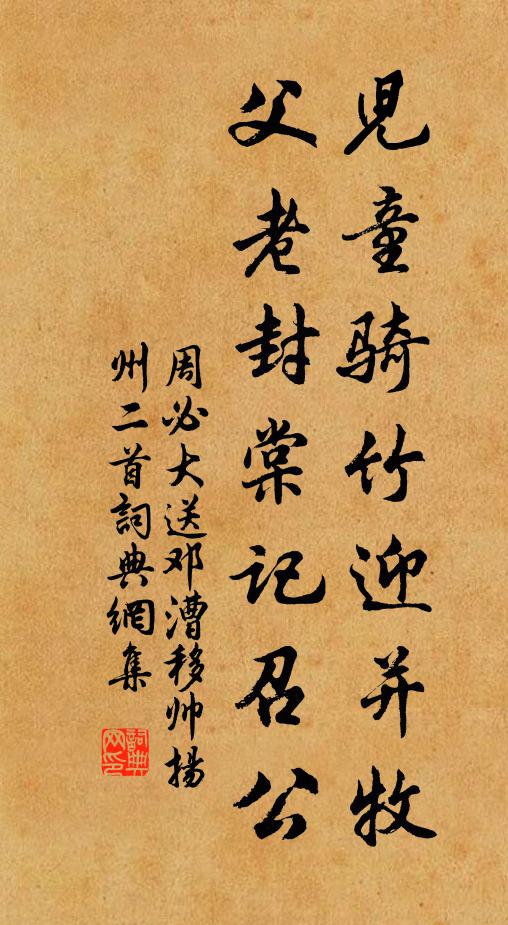 兒童騎竹迎并牧
父老封棠記召公
周必大送邓漕移帅揚
州二首詞典網集
詞典网印